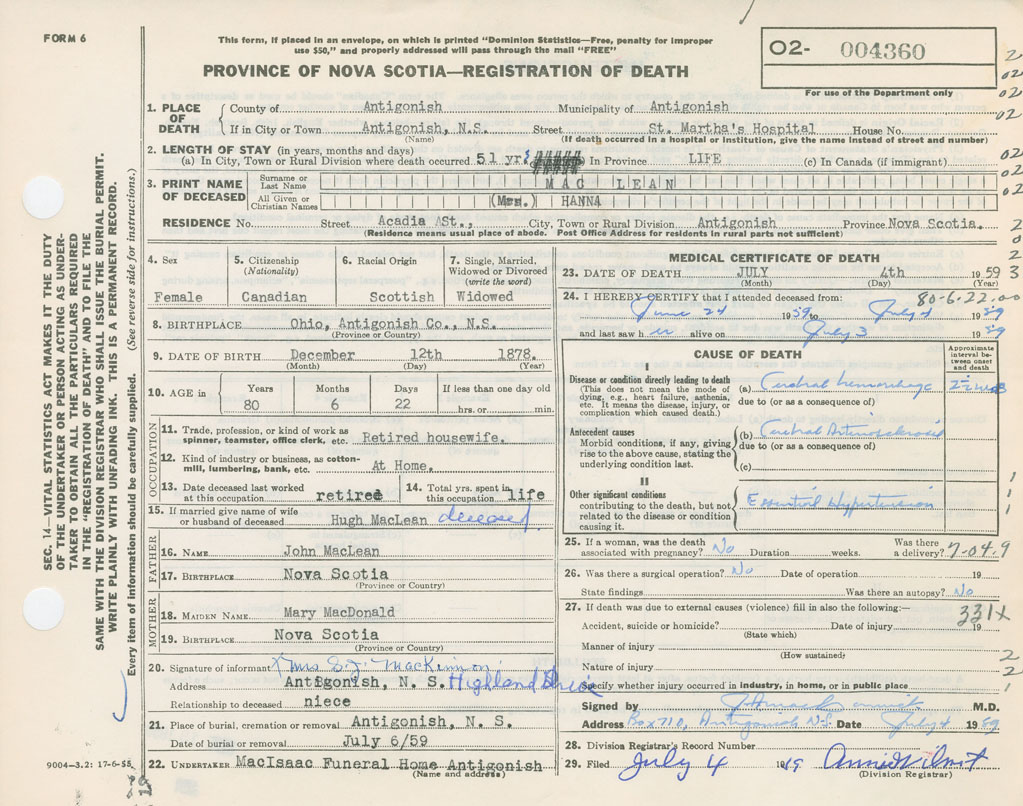 FORM 6
This form, if placed in an envelope, on which is printed "Dominion Statistics—Free, penalty for improper
use $50," and properly addressed will pass through the mail "FREE"
PROVINCE OF NOVA SCOTIA—REGISTRATION OF DEATH
02- 004360
For use of the Department only
SEC. 14—VITAL STATISTICS ACT MAKES IT THE DUTY
OF THE UNDERTAKER OR PERSON ACTING AS UNDER-
TAKER TO OBTAIN ALL THE PARTICULARS REQUIRED
IN THE "REGISTRATION OF DEATH" AND TO FILE THE
SAME WITH THE DIVISION REGISTRAR WHO SHALL ISSUE THE BURIAL PERMIT.
WRITE PLAINLY WITH UNFADING INK. THIS IS A PERMANENT RECORD.
Every item of information should be carefully supplied. (See reverse side for instructions.)
1. PLACE OF DEATH
County of Antigonish Municipality of Antigonish
If in City or Town Antigonish, N.S. Street St. Martha's Hospital House No.
(Name) (If death occurred in a hospital or institution, give the name instead of street and number)
2. LENGTH OF STAY (in years, months and days)
(a) In City, Town or Rural Division where death occurred 51 yrs In Province LIFE (c) In Canada (if immigrant)
3. PRINT NAME OF DECEASED
Surname or Last Name MAC LEAN
All Given or Christian Names (Mrs.) HANNA
RESIDENCE No. Street Acadia St., City, Town or Rural Division Antigonish Province Nova Scotia.
(Residence means usual place of abode. Post Office Address for residents in rural parts not sufficient)
4. Sex
Female
5. Citizenship (Nationality)
Canadian
6. Racial Origin
Scottish
7. Single, Married, Widowed or Divorced (write the word)
Widowed
8. BIRTHPLACE Ohio, Antigonish Co., N.S.
(Province or Country)
9. DATE OF BIRTH December 12th 1878.
(Month) (Day) (Year)
10. AGE in
Years Months Days If less than one day old
80 6 22 hrs. or min.
OCCUPATION
11. Trade, profession, or kind of work as
spinner, teamster, office clerk, etc. Retired housewife.
12. Kind of industry or business, as cotton-
mill, lumbering, bank, etc. At Home.
13. Date deceased last worked at this occupation retired
14. Total yrs. spent in this occupation life
15. If married give name of wife
or husband of deceased Hugh MacLean deceased.
FATHER
16. NAME John MacLean
17. BIRTHPLACE Nova Scotia
(Province or Country)
MOTHER
18. MAIDEN NAME Mary MacDonald
19. BIRTHPLACE Nova Scotia
(Province or Country)
20. Signature of informant Mrs S.J. MacKinnon
Address Antigonish, N. S. Highland Drive
Relationship to deceased niece
21. Place of burial, cremation or removal Antigonish, N. S.
Date of burial or removal July 6/59
22. UNDERTAKER MacIsaac Funeral Home Antigonish
(Name and address)
9004—3.2: 17-6-55
MEDICAL CERTIFICATE OF DEATH
23. DATE OF DEATH JULY 4th 1959
(Month) (Day) (Year)
80-6-22.00
24. I HEREBY CERTIFY that I attended deceased from:
June 24 1959 to July 4 1959
and last saw her alive on July 3 1959
CAUSE OF DEATH
Approximate interval between onset and death
I
Disease or condition directly leading to death
(This does not mean the mode of
dying, e.g., heart failure, asthenia,
etc. It means the disease, injury, or
complication which caused death.)
(a) Cerebral hemorrhage
due to (or as a consequence of)
Antecedent causes
Morbid conditions, if any, giving
rise to the above cause, stating the
underlying condition last.
(b) Cerebral Arteriosclerosis
due to (or as a consequence of)
(c)
II
Other significant conditions
contributing to the death, but not
related to the disease or condition
causing it.
Essential Hypertension
25. If a woman, was the death associated with pregnancy? No Duration weeks. Was there a delivery?
7-04.9
26. Was there a surgical operation? No Date of operation 19
State findings Was there an autopsy? No
27. If death was due to external causes (violence) fill in also the following:—
331X
Accident, suicide or homicide? Date of injury 19
(State which)
Manner of injury
(How sustained)
Nature of injury
Specify whether injury occurred in industry, in home, or in public place
Signed by M.D.
Address Box 710, Antigonish N.S. Date July 4 1959
28. Division Registrar's Record Number
29. Filed July 4 19
(Division Registrar)